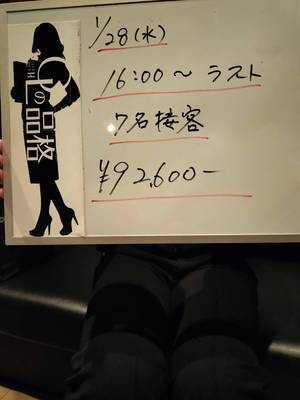 OLの品格
1/28(水)
16:00〜ラスト
7名接客
¥92,600-